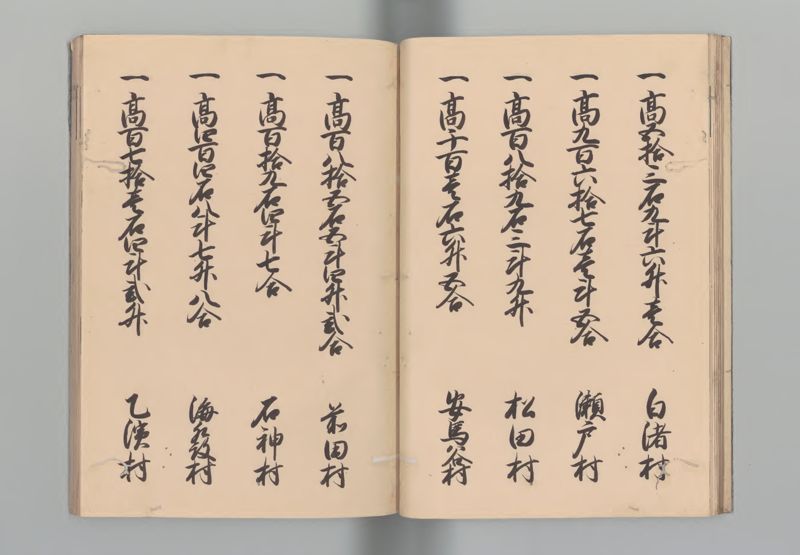 一 高五拾三石九斗六升壱合 白渚村
一 高九百六拾七石壱斗五合 瀬戸村
一 高百八拾九石三斗九升 松田村
一 高千百壱石六升五合 安馬谷村
一 高百八拾五石五斗四升弐合 前田村
一 高百拾九石四斗七合 石神村
一 高四百四石八斗七升八合 海発村
一 高百七拾壱石四斗弐升 乙浜村